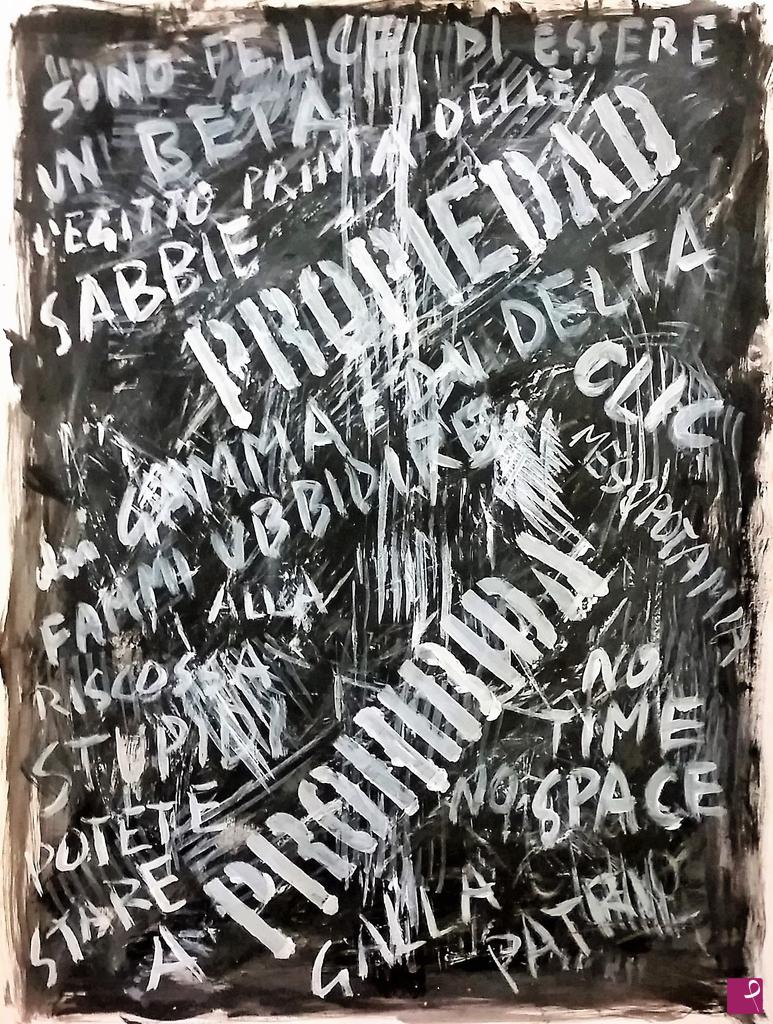 SONO FELICE DI ESSERE
UN BETA
L'EGITTO PRIMA DELLE
SABBIE
PROPIEDAD
GAMMA DELTA
CLIC
MESOPOTAMIA
FAMMI UBBIDIRE
ALLA
RISCOSSA
STUPIDI
PROHIBIDA
NO
TIME
NO SPACE
POTETE
STARE
A GALLA